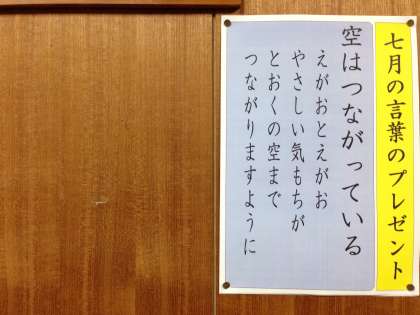 七月の言葉のプレゼント
空はつながっている
えがおとえがお
やさしい気もちが
とおくの空まで
つながりますように